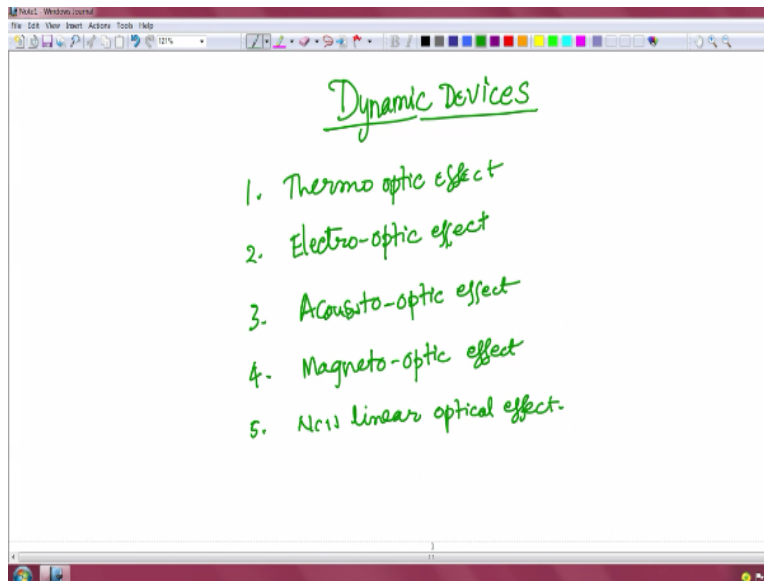 Note1 - Windows Journal
File Edit View Insert Actions Tools Help
121%
Dynamic Devices
1. Thermo optic effect
2. Electro-optic effect
3. Acousto-optic effect
4. Magneto-optic effect
5. Non linear optical effect.